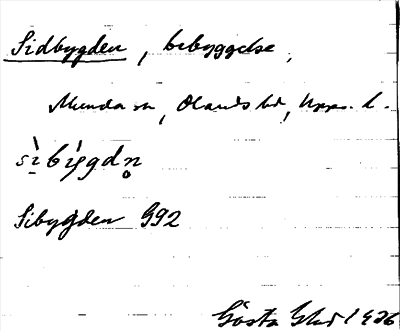 Sidbygden, bebyggelse,
Munda sn, Olands hd, Upps. l.
sìbíygdn̥
Sibygden 992
Gösta 1926